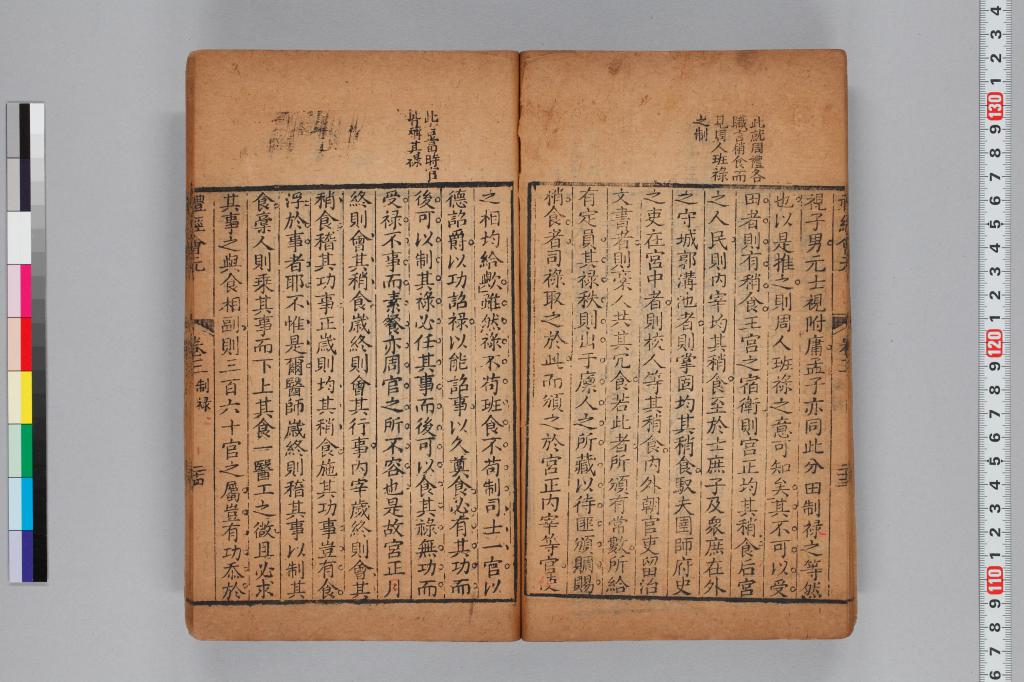 此就周禮各
職言稍食而
見周人班祿
之制
視子男元士視附庸孟子亦同此分田制祿之等然
也以是推之則周人班祿之意可知矣其不可以受
田者則有稍食王宮之宿衛則宮正均其稍食后宮
之人民則內宰均其稍食至於士庶子及衆庶在外
之守城郭溝池者則掌固均其稍食馭夫圉師府史
之吏在宮中者則校人等其稍食內外朝官吏留治
文書者則稾人共其冗食若此者所頒有常數所給
有定員其祿秩則出于廩人之所藏以待匪頒賙賜
稍食者司祿取之於此而頒之於宮正內宰等官
此言當時官
其祿
之相均給歟雖然祿不苟班食不苟制司士一官以
德詔爵以功詔祿以能詔事以久奠食必有其功而
後可以制其祿必任其事而後可以食其祿無功而
受祿不事而素餐亦周官之所不容也是故宮正月
終則會其稍食歲終則會其行事內宰歲終則會其
稍食稽其功事正歲則均其稍食施其功事豈有食
浮於事者耶不惟是爾醫師歲終則稽其事以制其
食稾人則乘其事而下上其食一醫工之微且必求
其事之與食相副則三百六十官之屬豈有功忝於
禮經會元
卷三
制祿
二十四